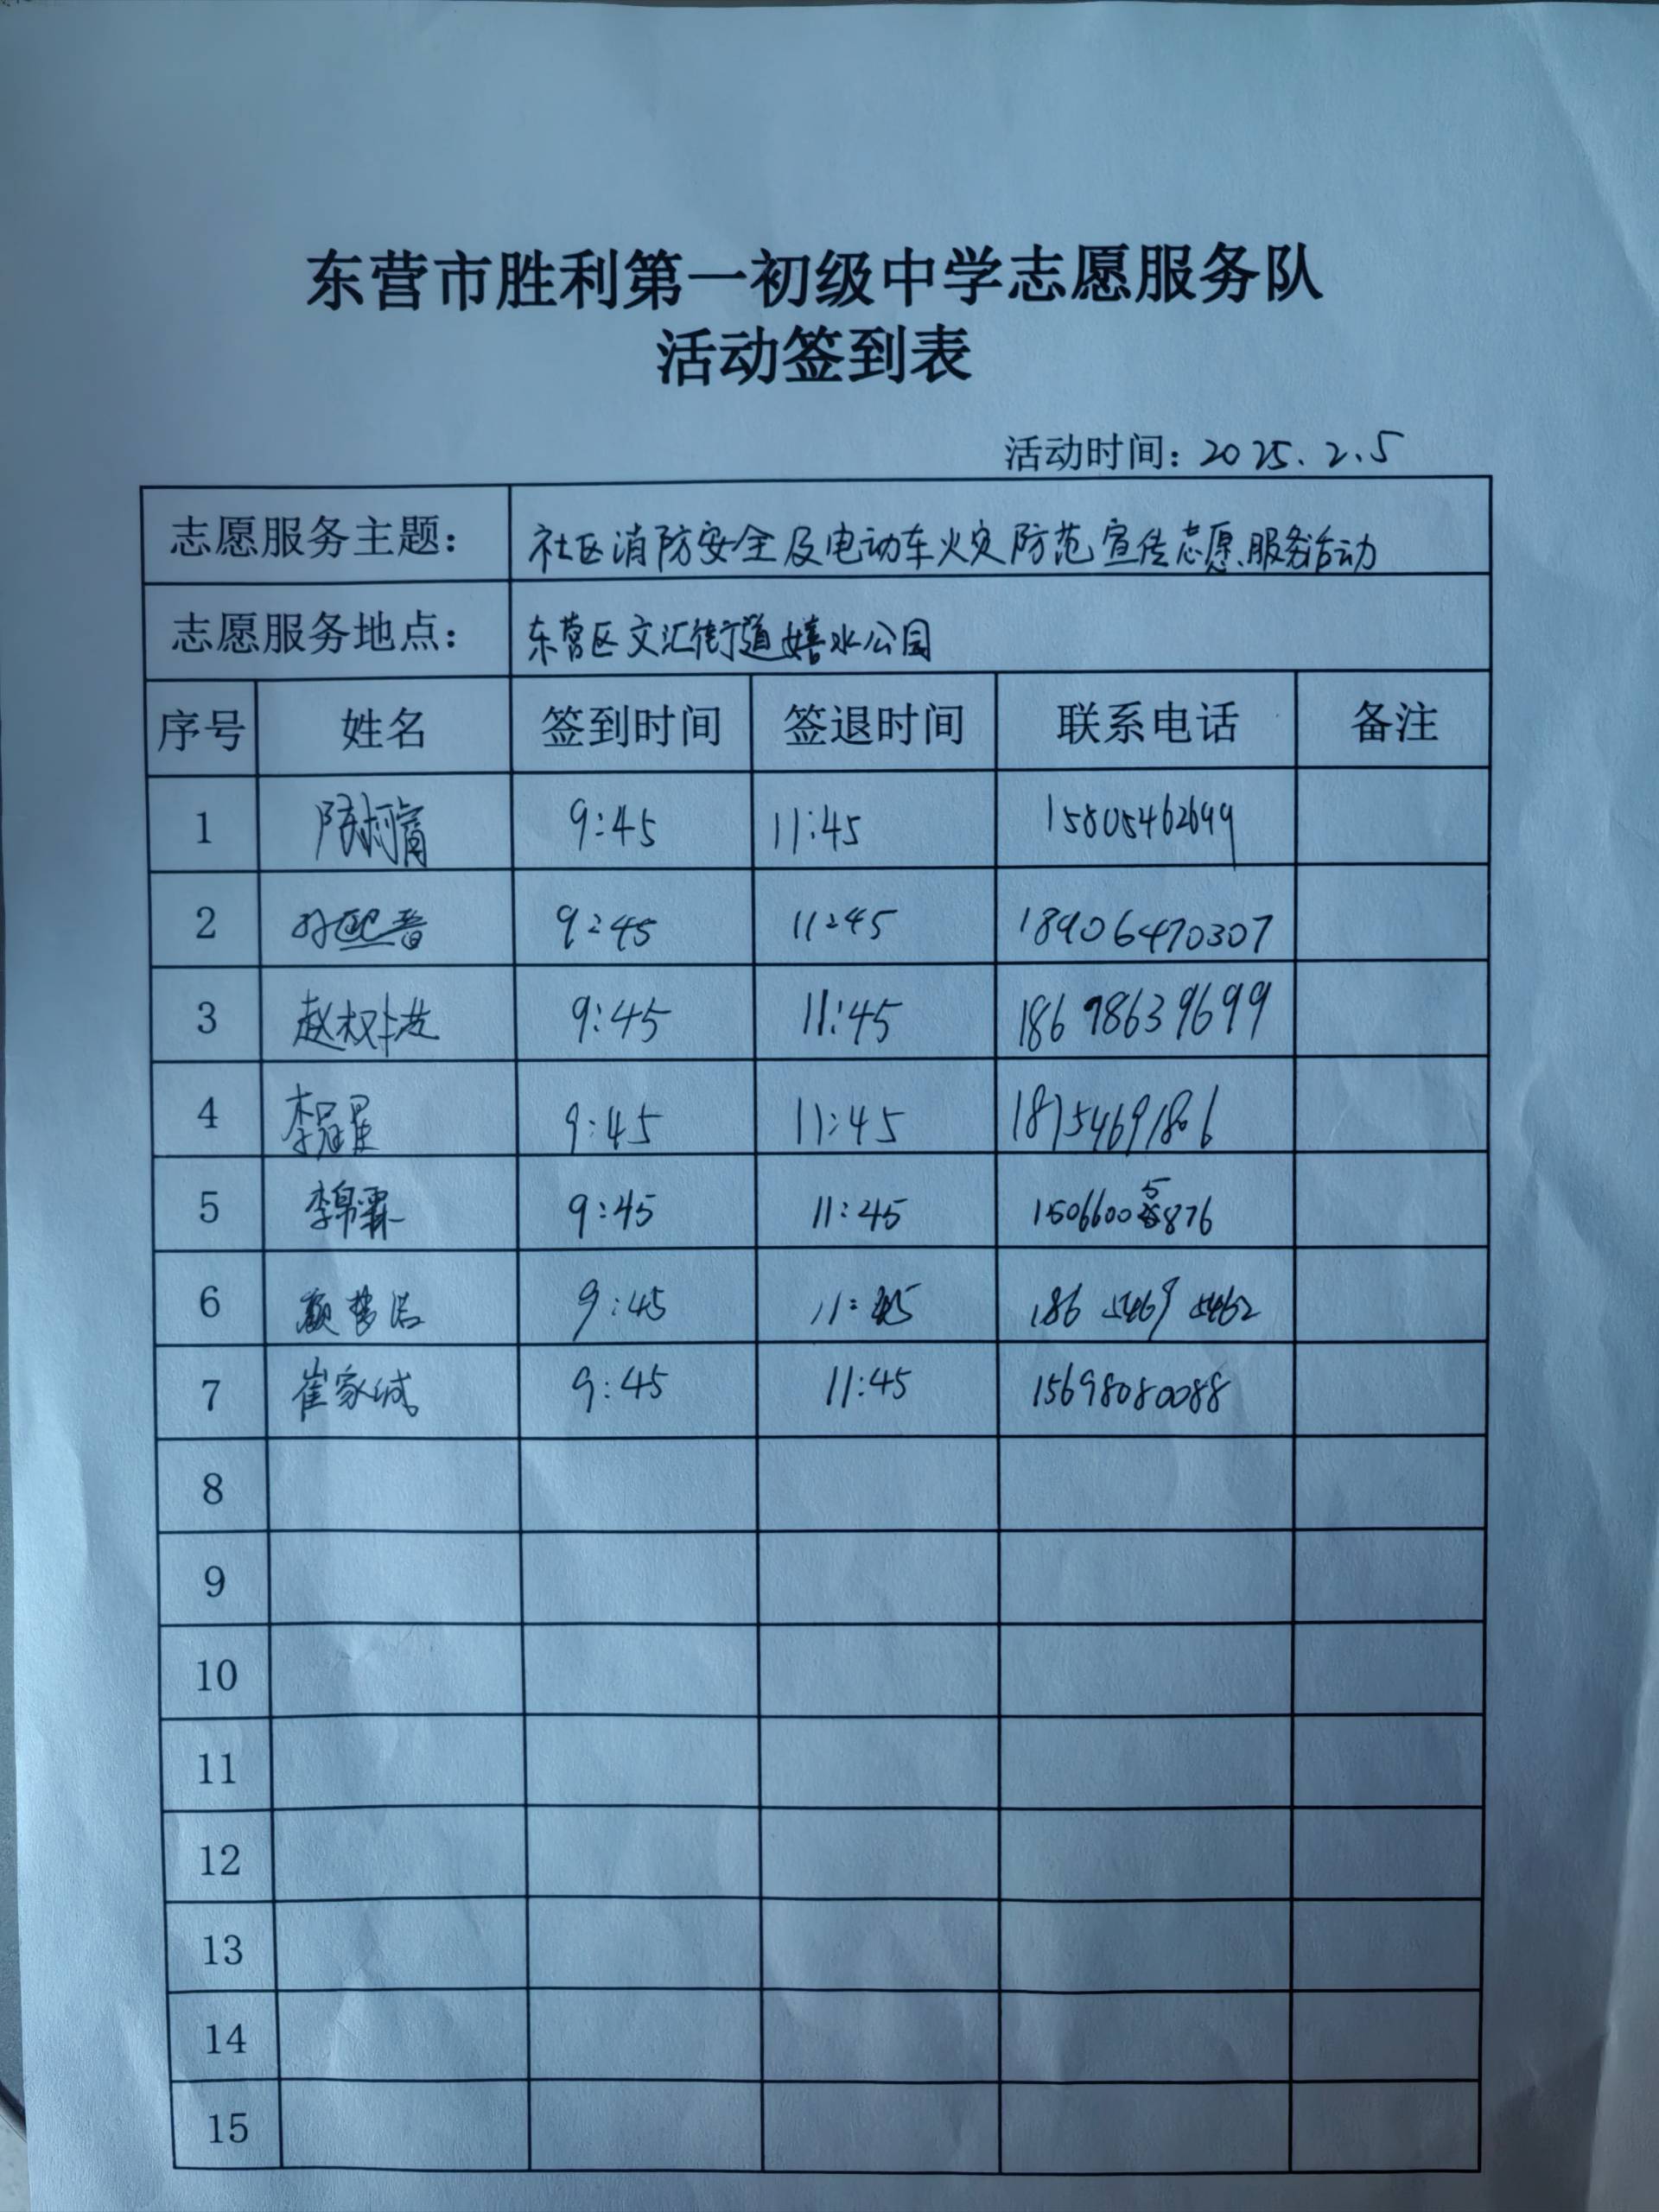 东营市胜利第一初级中学志愿服务队
活动签到表
活动时间：2025.2.5
志愿服务主题： 社区消防安全及电动车火灾防范宣传志愿服务活动
志愿服务地点： 东营区文汇街道嬉水公园
序号 姓名 签到时间 签退时间 联系电话 备注
1 9:45 11:45 15805462699
2 9:45 11:45 18906470307
3 9:45 11:45 18698639699
4 李冠星 9:45 11:45 18754691806
5 李锦霖 9:45 11:45 15066005876
6 顾梦浩 9:45 11:45 186 5469 5462
7 崔家诚 9:45 11:45 15698080088
8
9
10
11
12
13
14
15